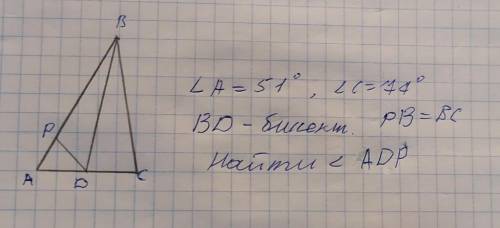 B
P
A D C
∠A = 51°, ∠C = 74°
BD - биссект. PB = BC
Найти < ADP